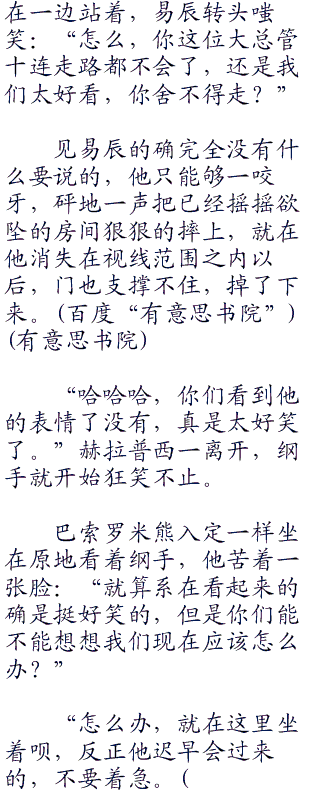 在一边站着，易辰转头嗤
笑：“怎么，你这位大总管
十连走路都不会了，还是我
们太好看，你舍不得走？”
见易辰的确完全没有什
么要说的，他只能够一咬
牙，砰地一声把已经摇摇欲
坠的房间狠狠的摔上，就在
他消失在视线范围之内以
后，门也支撑不住，掉了下
来。(百度“有意思书院”)
(有意思书院)
“哈哈哈，你们看到他
的表情了没有，真是太好笑
了。”赫拉普西一离开，纲
手就开始狂笑不止。
巴索罗米熊入定一样坐
在原地看着纲手，他苦着一
张脸：“就算系在看起来的
确是挺好笑的，但是你们能
不能想想我们现在应该怎么
办？”
“怎么办，就在这里坐
着呗，反正他迟早会过来
的，不要着急。(